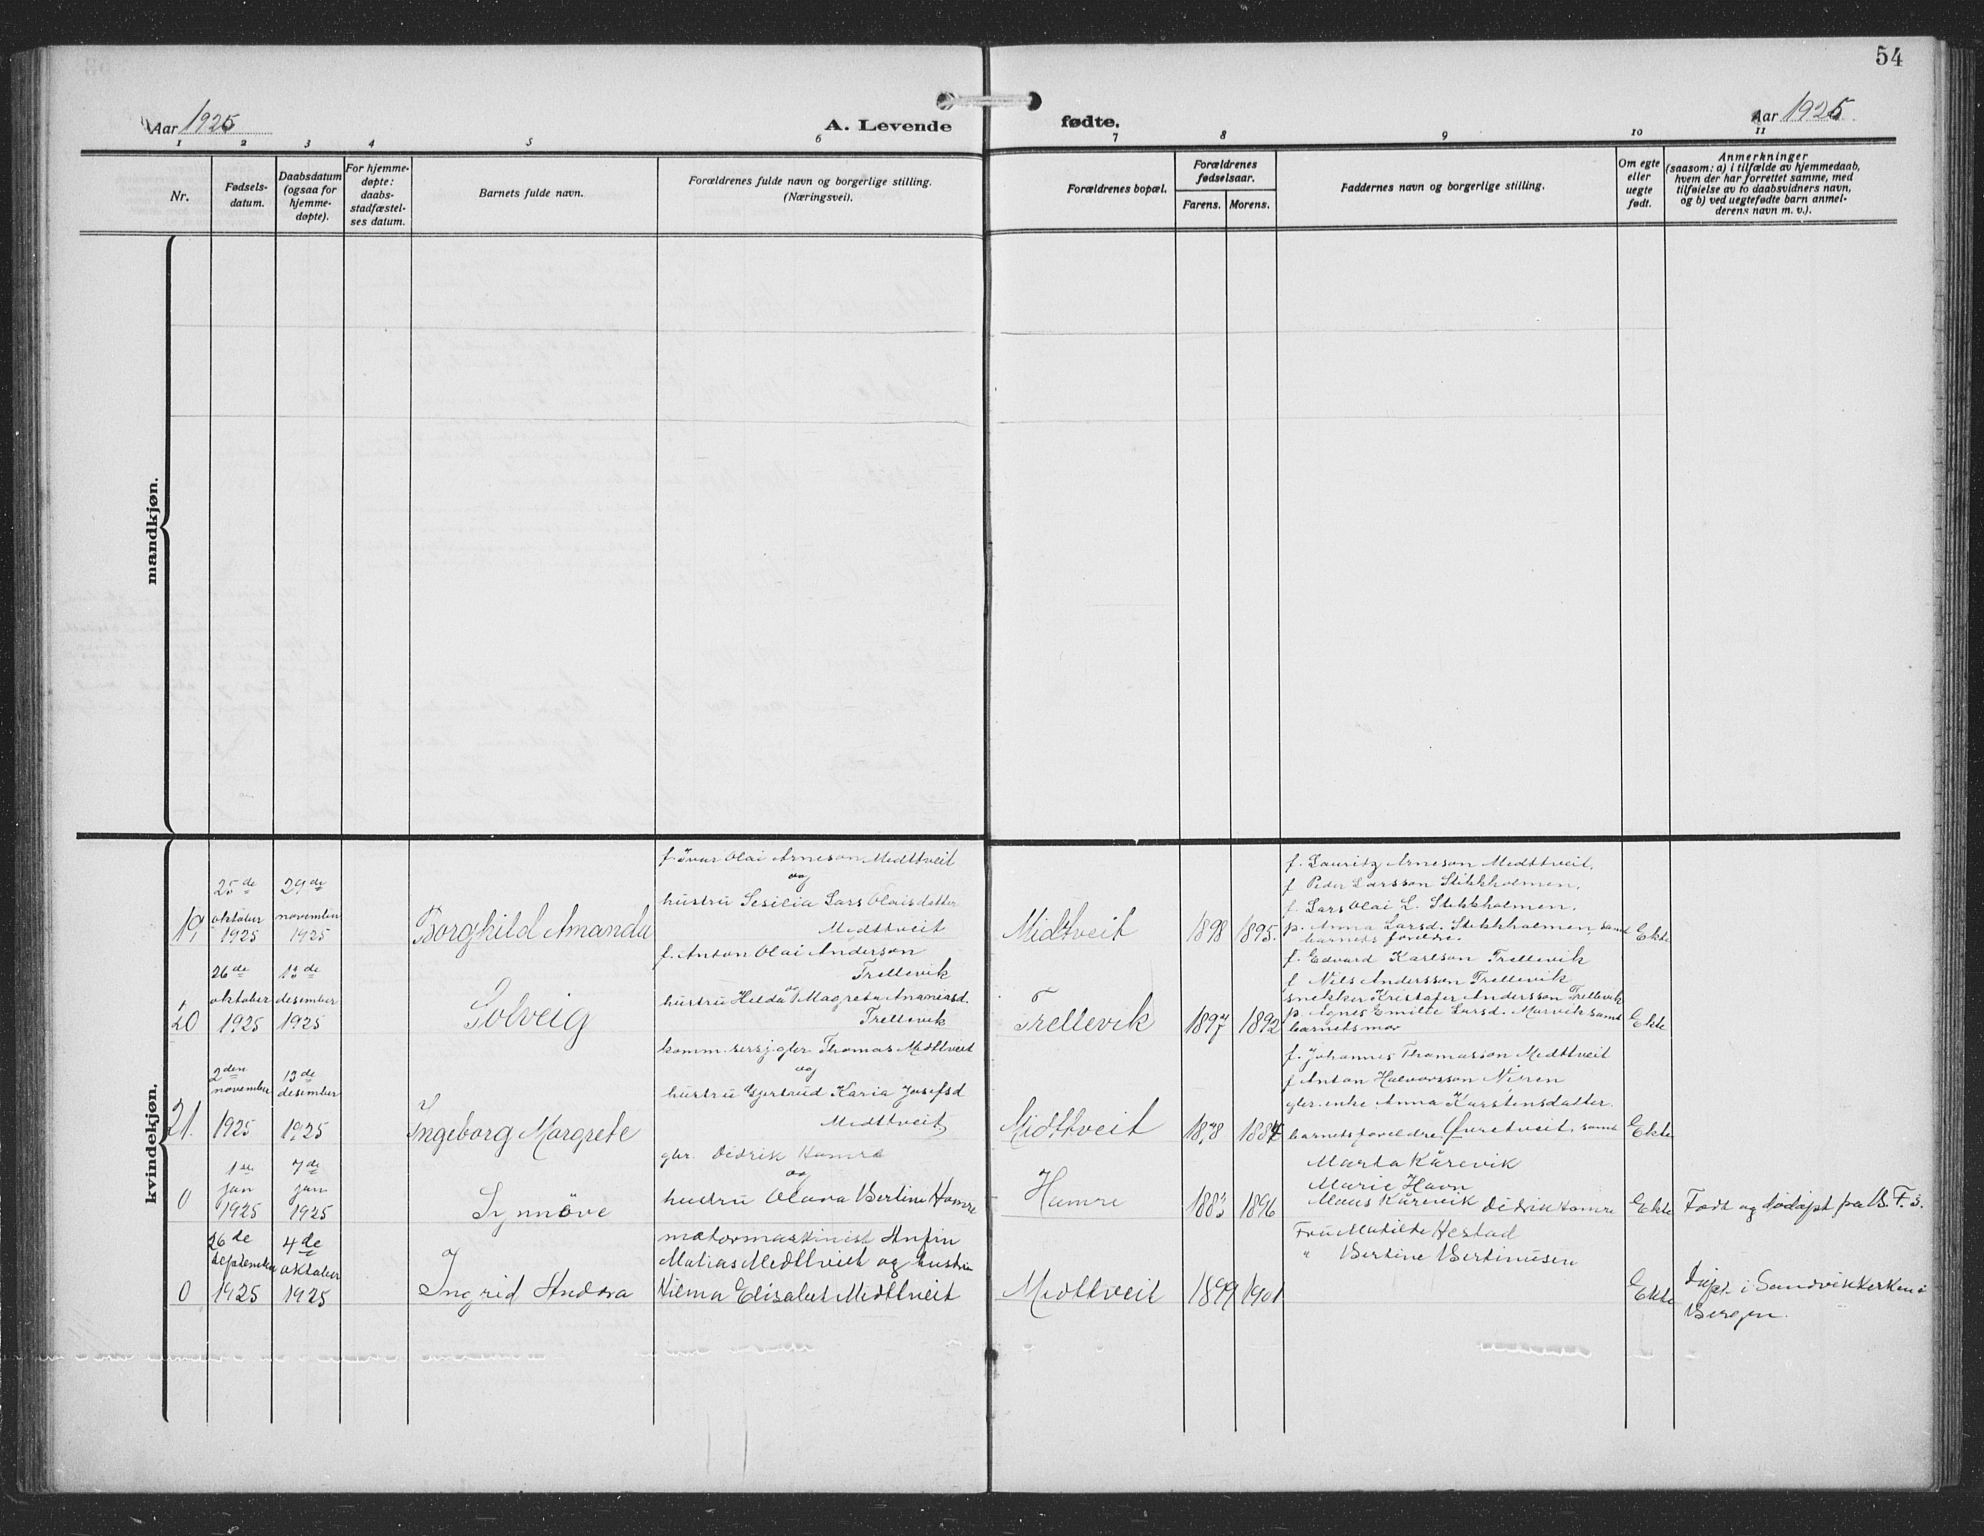 54
Aar 1925
A. Levende fødte.
Aar 1925.
1 2 3 4 5 6 7 8 9 10 11
Nr.
Fødsels-
datum.
Daabsdatum
(ogsaa for
hjemme-
døpte).
For hjemme-
døpte:
daabs-
stadfæstel-
ses datum.
Barnets fulde navn.
Forældrenes fulde navn og borgerlige stilling.
(Næringsvei).
Forældrenes bopæl.
Forældrenes
fødselsaar.
Farens. Morens.
Faddernes navn og borgerlige stilling.
Om egte
eller
uegte
født.
Anmerkninger
(saasom: a) i tilfælde av hjemmedaab,
hvem der har forrettet samme, med
tilføielse av to daabsvidners navn,
og b) ved uegtefødte barn anmel-
derens navn m. v.).
mandkjøn.
kvindekjøn.
19,
25de
oktober
1925
29de
november
1925
Borghild Amanda
f. Ivar Olai Arneson Midttveit
og
hustru Sesilia Lars Olaisdatter
Midttveit
Midtveit
1898 1895.
f. Lauritz Arneson Midttveit.
f Peder Larsson Stikkholmen.
f. Lars Olai L. Stikkholmen.
p. Anna Larsd. Stikkholmen, samt
barnets foreldre.
Ekte
20
26de
oktober
1925
13de
desember
1925
Solveig
f. Anton Olai Anderson
Trellevik
og
hustru Helda Magreta Ananiasd.
Trellevik
Trellevik
1897 1892
f. Edvard Karlson Trellevik
f Nils Andersson Trellevik
snekker Kristofer Andersson Trellevik
p. Agnes Emilie Larsd. Marvik samt
barnets mor
Ekte
21.
2den
november
1925
13de
desember
1925
Ingeborg Margrete
komm. gbr. Thomas Midttveit
og
hustru Gjertrud Karia Josefsd
Midttveit
Midttveit
1878 1884
f. Johannes Thomasson Midttveit
f Anton Halvorsson
gbr. enke Anna Karstensdatter
barnets foreldre. Øvretveit, samt
Ekte
0
1ste
jan
1925
7de
jan
1925
Synnöve
gbr. Didrik Hamre
og
hustru Olava Bertine Hamre
Hamre
1883 1896
Marta Kårevik
Marie Havn
Mons Kårevik Didrik Hamre
Ekte
Født og døpt paa B. F. S.
0
26de
september
1925
4de
oktober
1925
Ingrid Andora
motormaskinist Anfin
Matias Midttveit og hustru
Vilma Elisabet Midttveit
Midttveit
1899 1901
Fru Matilde Hestad
" Bertine Bertinusen
Ekte
Døpt i Sandvikkerken i
Bergen.